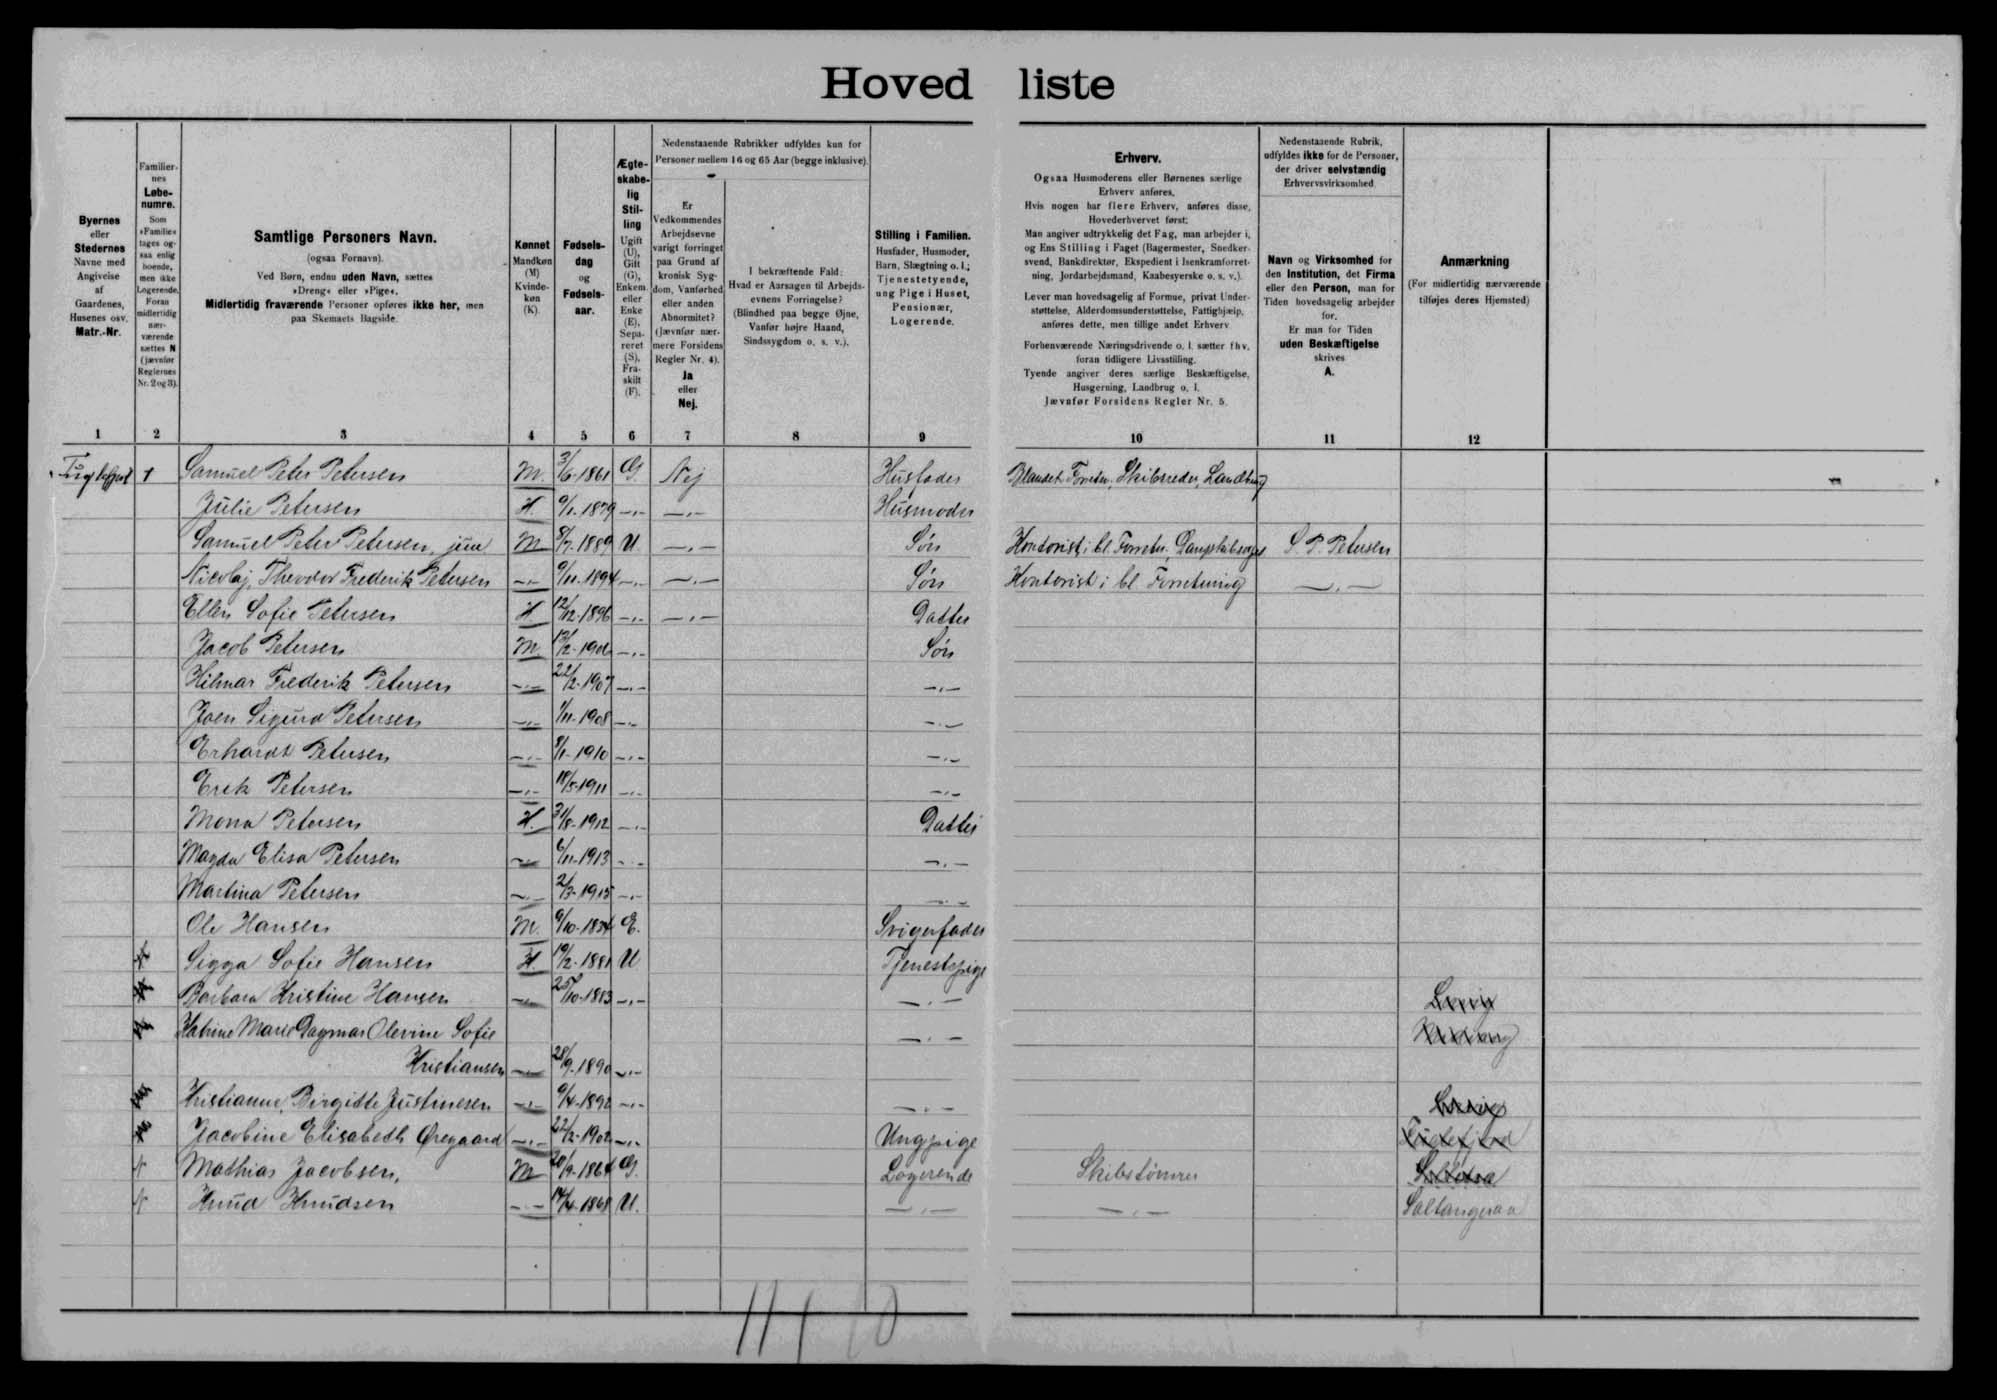 Hoved liste
Byernes
eller
Stedernes
Navne med
Angivelse
af
Gaardenes,
Husenes osv.
Matr.-Nr.
Familier-
nes
Løbe-
numre.
Som
»Familie«
tages og-
saa enlig
boende,
men ikke
Logerende.
Foran
midlertidig
nær-
værende
sættes N
(jævnfør
Reglernes
Nr. 2 og 3).
Samtlige Personers Navn.
(ogsaa Fornavn).
Ved Børn, endnu uden Navn, sættes
»Dreng« eller »Pige«.
Midlertidig fraværende Personer opføres ikke her, men
paa Skemaets Bagside.
Kønnet
Mandkøn
(M)
Kvinde-
køn
(K).
Fødsels-
dag
og
Fødsels-
aar.
Ægte-
skabe-
lig
Stil-
ling
Ugift
(U),
Gift
(G),
Enkem.
eller
Enke
(E),
Sepa-
reret
(S),
Fra-
skilt
(F).
Nedenstaaende Rubrikker udfyldes kun for
Personer mellem 16 og 65 Aar (begge inklusive).
Er
Vedkommendes
Arbejdsevne
varigt forringet
paa Grund af
kronisk Syg-
dom, Vanførhed
eller anden
Abnormitet?
(Jævnfør nær-
mere Forsidens
Regler Nr. 4).
Ja
eller
Nej.
I bekræftende Fald:
Hvad er Aarsagen til Arbejds-
evnens Forringelse?
(Blindhed paa begge Øjne,
Vanfør højre Haand,
Sindssygdom o. s. v.).
Stilling i Familien.
Husfader, Husmoder,
Barn, Slægtning o. l.;
Tjenestetyende,
ung Pige i Huset,
Pensionær,
Logerende.
Erhverv.
Ogsaa Husmoderens eller Børnenes særlige
Erhverv anføres.
Hvis nogen har flere Erhverv, anføres disse,
Hovederhvervet først;
Man angiver udtrykkelig det Fag, man arbejder i,
og Ens Stilling i Faget (Bagermester, Snedker-
svend, Bankdirektør, Ekspedient i Isenkramforret-
ning, Jordarbejdsmand, Kaabesyerske o. s. v.).
Lever man hovedsagelig af Formue, privat Under-
støttelse, Alderdomsunderstøttelse, Fattighjælp,
anføres dette, men tillige andet Erhverv
Forhenværende Næringsdrivende o. l. sætter fhv.
foran tidligere Livsstilling.
Tyende angiver deres særlige Beskæftigelse,
Husgerning, Landbrug o. l.
Jævnfør Forsidens Regler Nr. 5.
Nedenstaaende Rubrik,
udfyldes ikke for de Personer,
der driver selvstændig
Erhvervsvirksomhed
Navn og Virksomhed for
den Institution, det Firma
eller den Person, man for
Tiden hovedsagelig arbejder
for.
Er man for Tiden
uden Beskæftigelse
skrives
A.
Anmærkning
(For midlertidig nærværende
tilføjes deres Hjemsted)
1 2 3 4 5 6 7 8 9 10 11 12
1 Samuel Peter Petersen M. 3/6-1861 G. Nej Husfader Blandet Forretn. Skibsreder, Landbrug
Julie Petersen K. 9/1-1879 -"- -"- Husmoder
Samuel Peter Petersen, jun M 8/7-1889 U -"- Søn Kontorist i bl. Forretn. S. P. Petersen
Nicolaj Theodor Frederik Petersen -"- 9/11-1894 -"- -"- Søn Kontorist i bl. Forretning -"-
Ellen Sofie Petersen K 12/12-1896 -"- -"- Datter
Jacob Petersen M. -"- Søn
Hilmar Frederik Petersen -"- 22/2-1907 -"- -"-
Joen Sigurd Petersen -"- 1/11-1908 -"- -"-
Erhardt Petersen -"- 9/1-1910 -"- -"-
Erik Petersen -"- 18/5-1911 -"- -"-
Mona Petersen K. 31/8-1912 -"- Datter
Magda Elisa Petersen -"- 6/11-1913 -"- -"-
Martina Petersen -"- 2/3-1915 -"- -"-
Ole Hansen M. 9/10-1834 E. Svigerfader
Sigga Sofie Hansen K. 19/2-1881 U Tjenestepige
Barbara Kristine Hansen -"- 25/10-1883 -"- -"-
Katrine Marie Dagmar Olevine Sofie -"-
Kristiansen -"- 28/9-1890 -"-
Kristianne Birgitte Justinesen -"- 9/4-1892 -"- -"-
Jacobine Elisabeth Øregaard -"- 22/2-1902 -"- Ungpige
N Mathias Jacobsen, M 20/9-1864 G. Logerende Skibstømrer
N Knud Knudsen -"- 14/4-1868 U. -"- -"- Saltangeraa